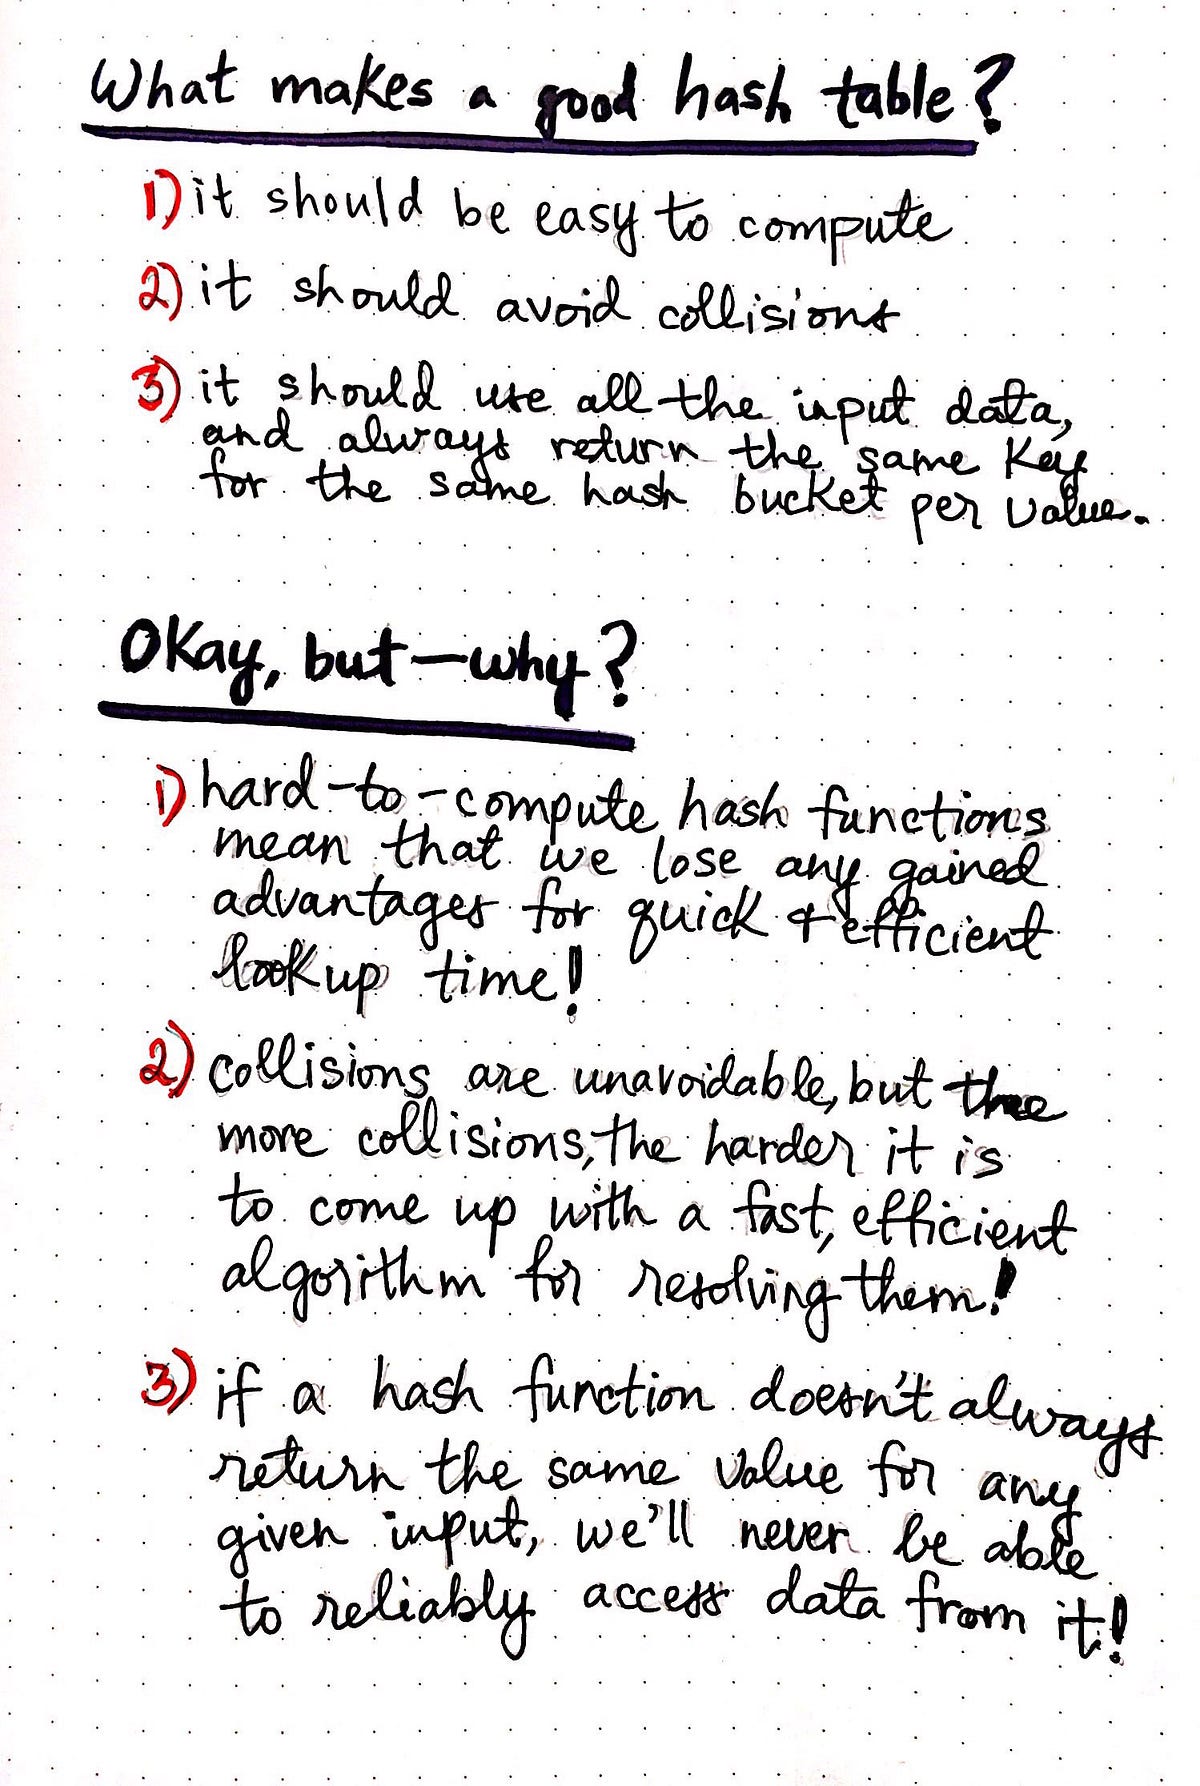 What makes a good hash table?
1) it should be easy to compute
2) it should avoid collisions
3) it should use all the input data,
and always return the same key
for the same hash bucket per value.
Okay, but—why?
1) hard-to-compute hash functions
mean that we lose any gained
advantages for quick & efficient
lookup time!
2) collisions are unavoidable, but the
more collisions, the harder it is
to come up with a fast, efficient
algorithm for resolving them!
3) if a hash function doesn't always
return the same value for any
given input, we'll never be able
to reliably access data from it!